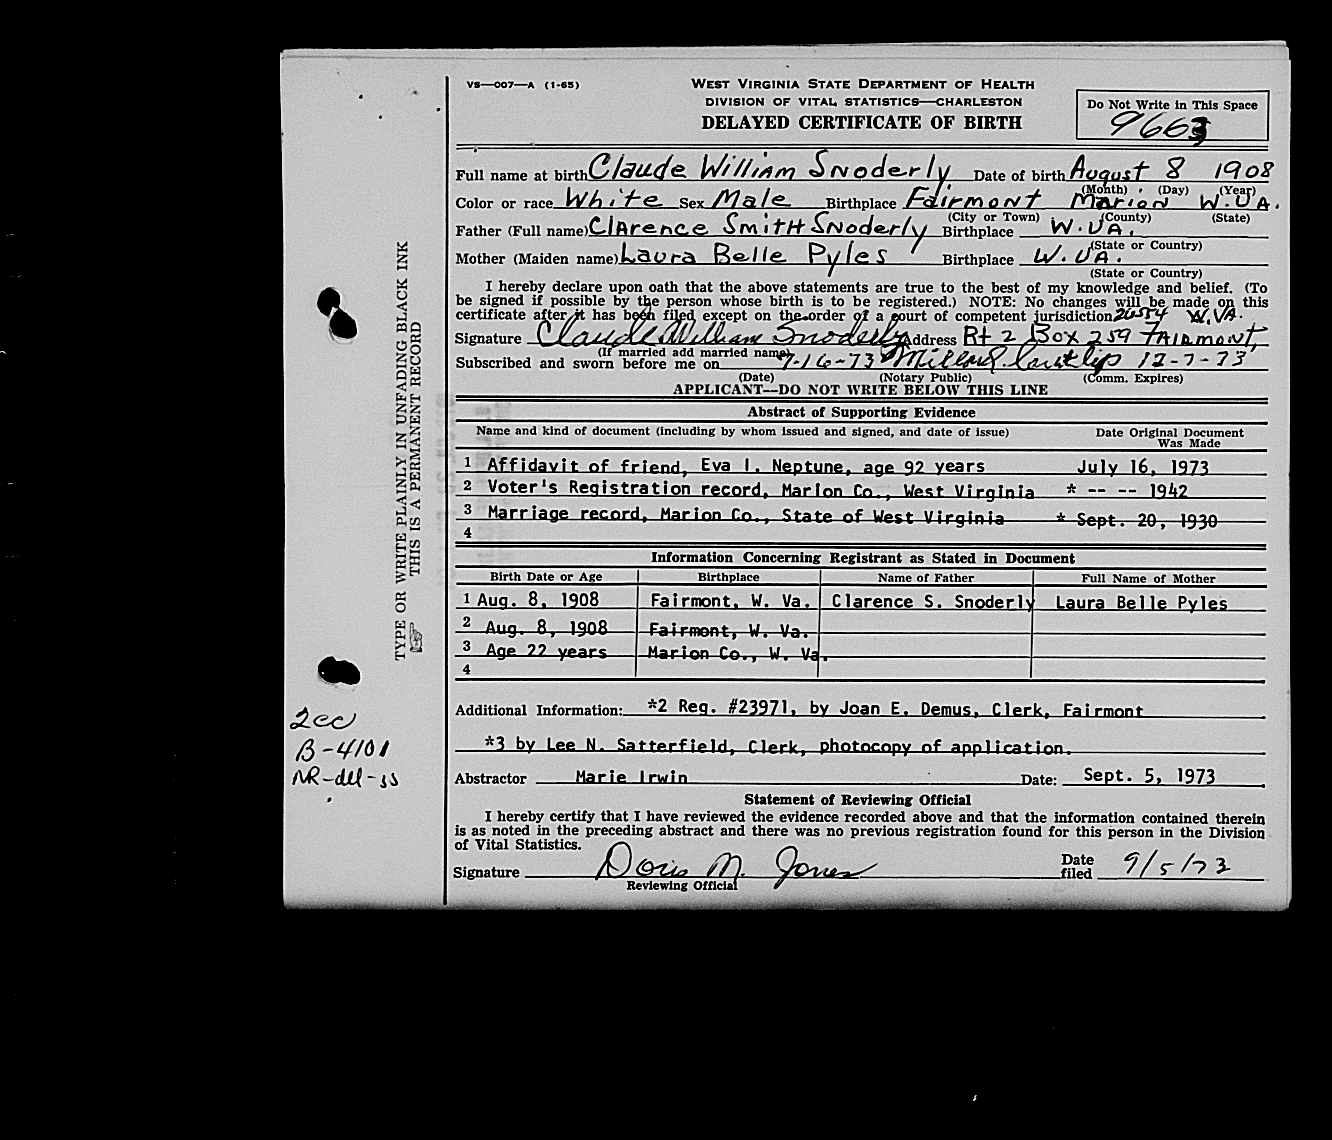 VS—007—A (1-65)
WEST VIRGINIA STATE DEPARTMENT OF HEALTH
DIVISION OF VITAL STATISTICS—CHARLESTON
DELAYED CERTIFICATE OF BIRTH
Do Not Write in This Space
9663
Full name at birth Claude William Snoderly Date of birth August 8 1908
(Month) (Day) (Year)
Color or race White Sex Male Birthplace Fairmont Marion W.VA.
(City or Town) (County) (State)
Father (Full name) Clarence Smith Snoderly Birthplace W.VA.
(State or Country)
Mother (Maiden name) Laura Belle Pyles Birthplace W.VA.
(State or Country)
I hereby declare upon oath that the above statements are true to the best of my knowledge and belief. (To
be signed if possible by the person whose birth is to be registered.) NOTE: No changes will be made on this
certificate after it has been filed except on the order of a court of competent jurisdiction. 26554 W.VA.
Signature Claude William Snoderly Address Rt 2 Box 259 Fairmont,
(If married add married name)
Subscribed and sworn before me on 7-16-73 12-7-73
(Date) (Notary Public) (Comm. Expires)
APPLICANT—DO NOT WRITE BELOW THIS LINE
Abstract of Supporting Evidence
Name and kind of document (including by whom issued and signed, and date of issue) Date Original Document
Was Made
1 Affidavit of friend, Eva I. Neptune, age 92 years July 16, 1973
2 Voter's Registration record, Marion Co., West Virginia * -- -- 1942
3 Marriage record, Marion Co., State of West Virginia * Sept. 20, 1930
4
Information Concerning Registrant as Stated in Document
Birth Date or Age Birthplace Name of Father Full Name of Mother
1 Aug. 8, 1908 Fairmont, W. Va. Clarence S. Snoderly Laura Belle Pyles
2 Aug. 8, 1908 Fairmont, W. Va.
3 Age 22 years Marion Co., W. Va.
4
Additional Information: *2 Reg. #23971, by Joan E. Demus, Clerk, Fairmont
*3 by Lee N. Satterfield, Clerk, photocopy of application.
Abstractor Marie Irwin Date: Sept. 5, 1973
Statement of Reviewing Official
I hereby certify that I have reviewed the evidence recorded above and that the information contained therein
is as noted in the preceding abstract and there was no previous registration found for this person in the Division
of Vital Statistics.
Signature Doris M. Jones Date filed 9/5/73
Reviewing Official
TYPE OR WRITE PLAINLY IN UNFADING BLACK INK
THIS IS A PERMANENT RECORD
2cc
B-4101
NR-del-ss